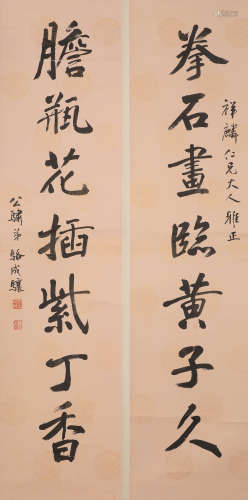 拳石畫臨黃子久
祥麟仁兄大人雅正
膽瓶花插紫丁香
公驌弟駱成驤